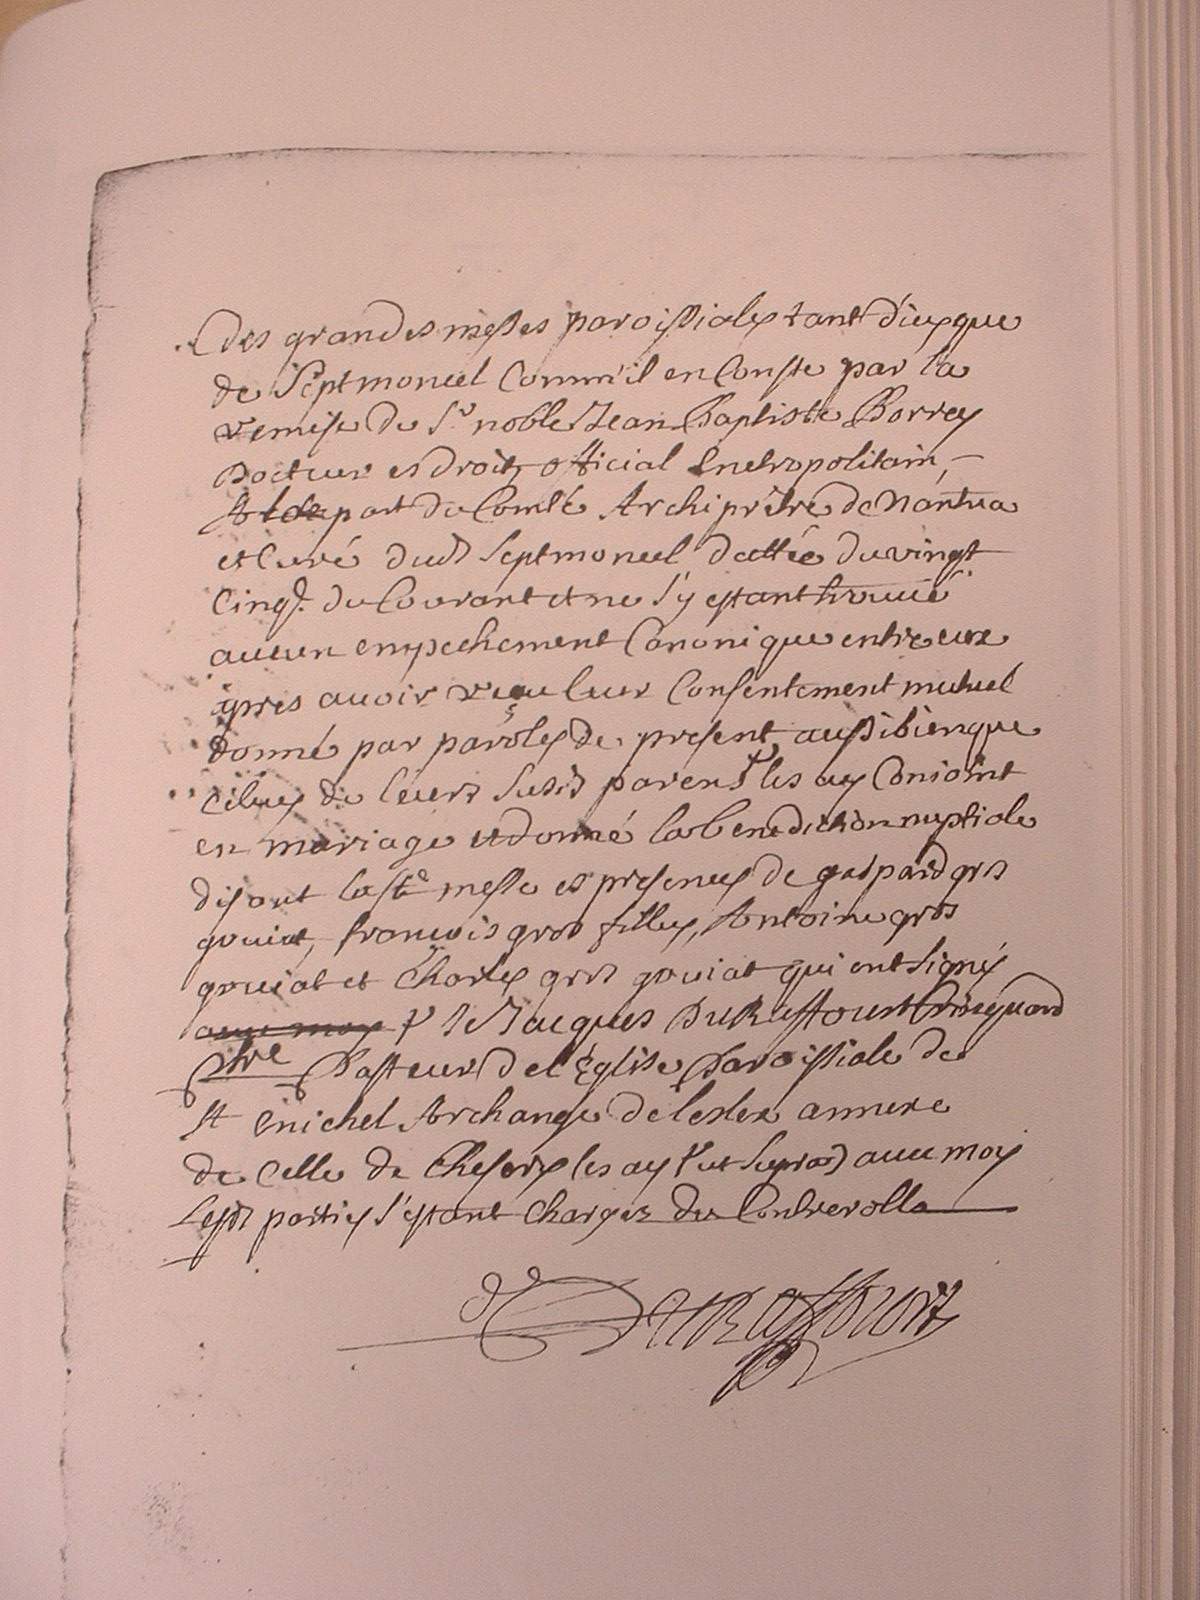 des grandes messes paroissiales tant d'icy que
de Septmoncel Comm'il en Conste par la
remise du Sr noble Jean Baptiste Borrey
Docteur es droitz official metropolitain
part du Comté Archiprêtre de Nantua
et Curé dud Septmoncel dattée du vingt
Cinq. du Courant et ne s'y estant trouué
aucun empechement Canonique entre eux
apres auoir reçu leur Consentement mutuel
donné par paroles de present aussi bien que
celuy de leurs susds parents les ay Conioint
en mariage et donné la benediction nuptiale
disant la ste messe es presences de gaspard gros
gouiat, francois gros fillux, Antoine gros
gouiat et Charles gros gouiat qui ont signés
auec moy Jacques DuRaffourt
ptre Pasteur de l'Eglise Paroissiale de
St Michel Archange de lesler annexe
de Celle de Chesery les ay ut supra) auec moy
lesds parties s'estant Chargez du Controlle
DuRaffourt